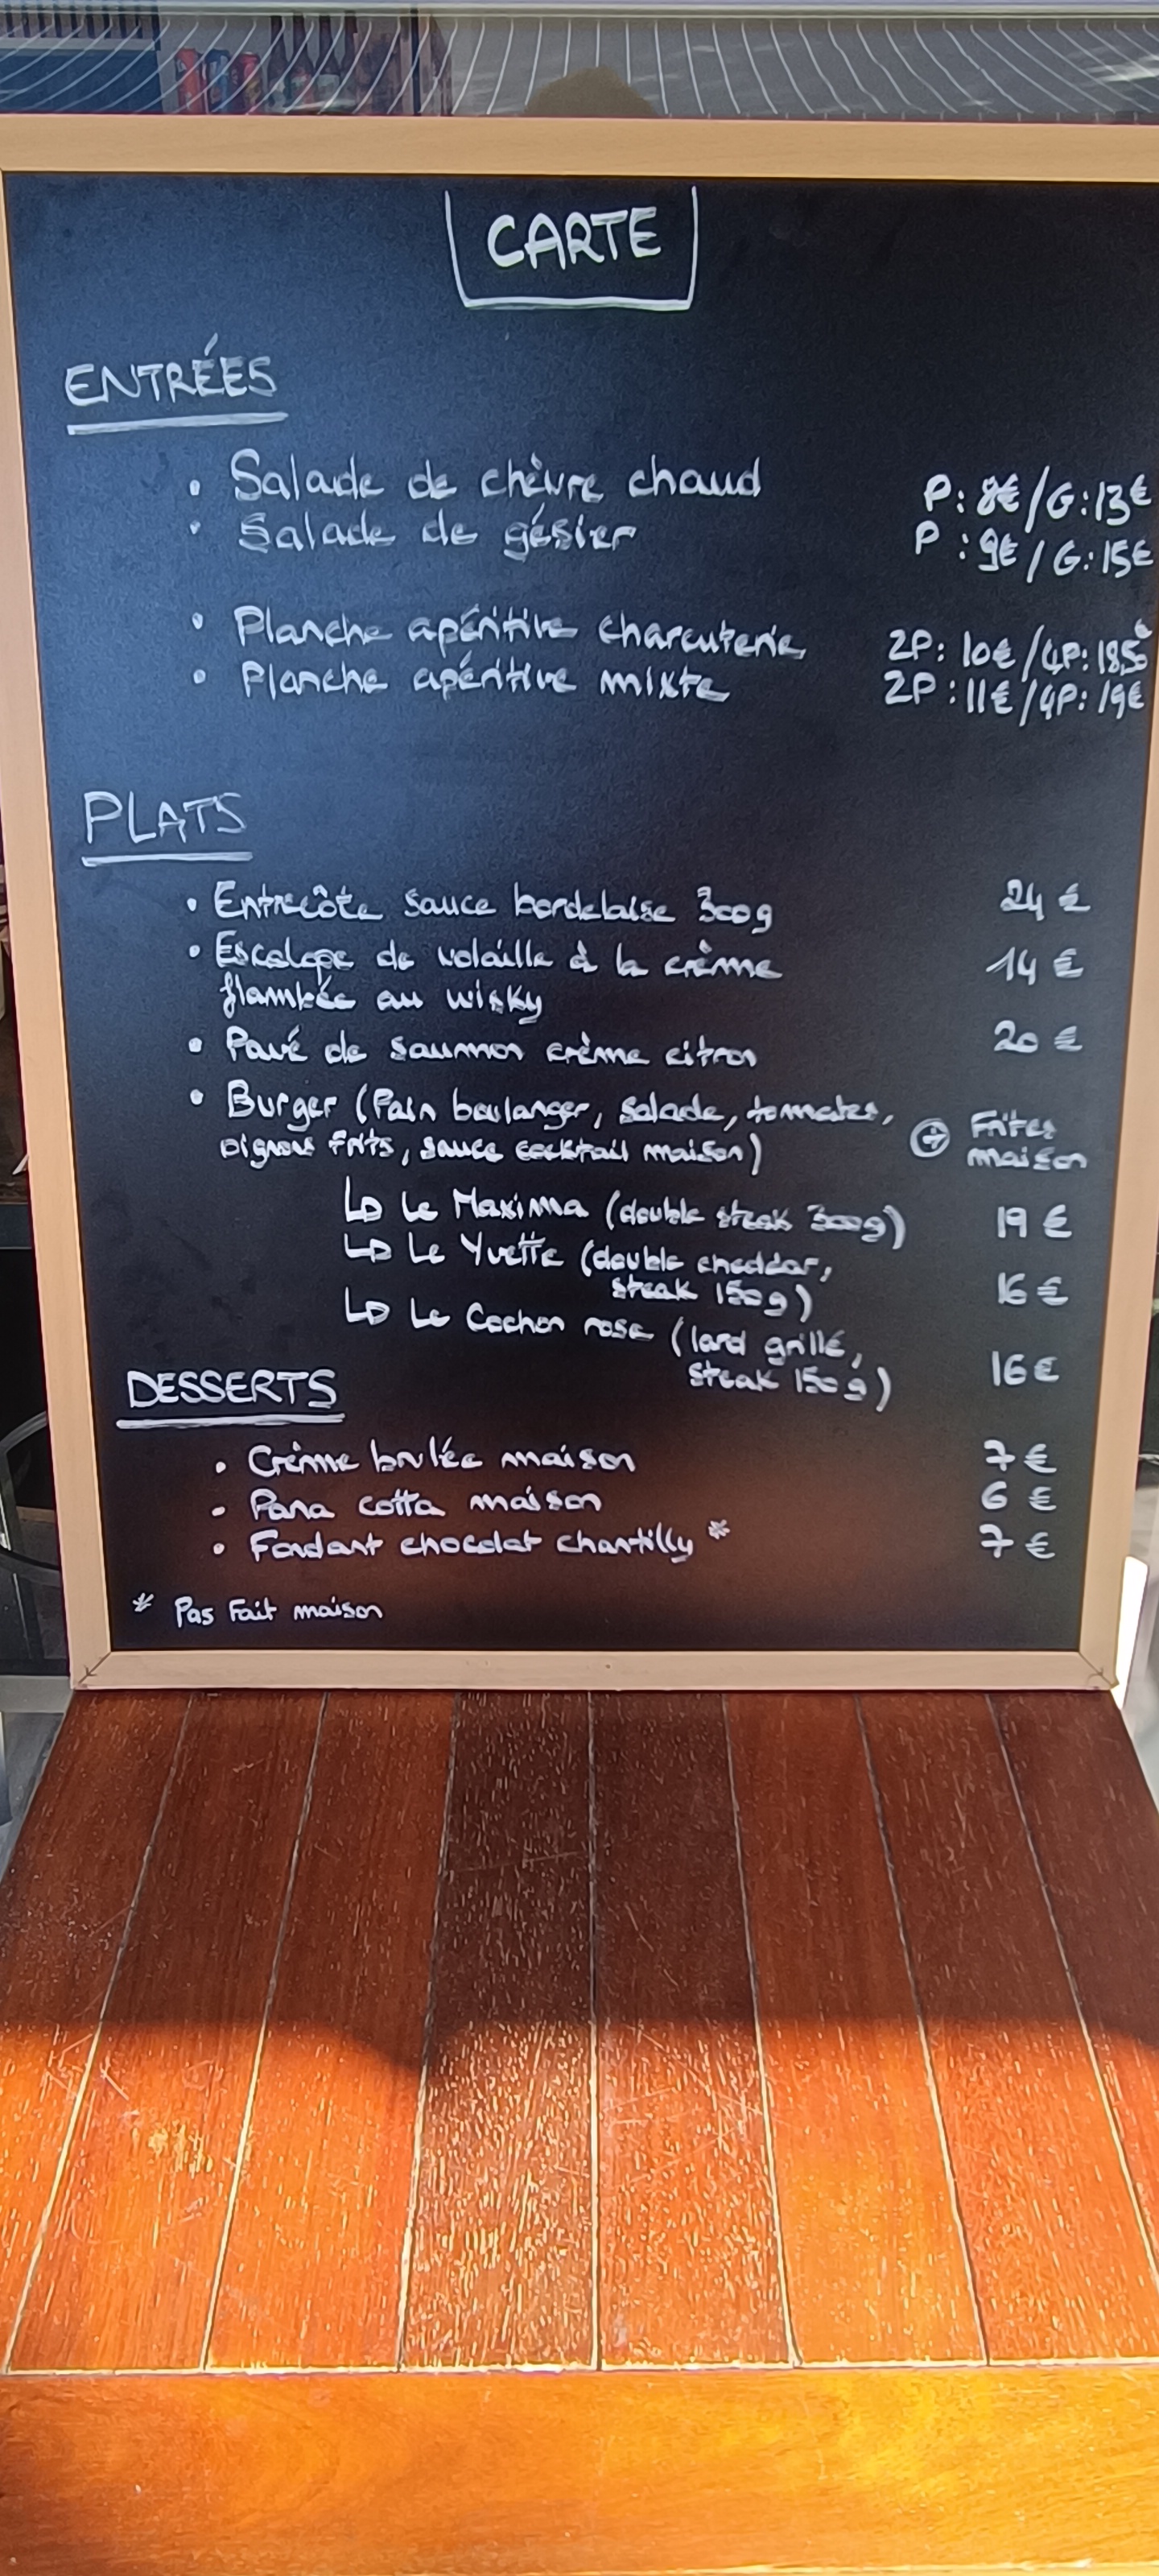 CARTE
ENTRÉES
• Salade de chèvre chaud P: 8€/G:13€
• Salade de gésier P: 9€/G:15€
• Planche apéritive charcuterie 2P: 10€/4P: 18,5€
• Planche apéritive mixte 2P: 11€/4P: 19€
PLATS
• Entrecôte sauce bordelaise 300g 24 €
• Escalope de volaille à la crème 14 €
flambée au wisky
• Pavé de saumon crème citron 20 €
• Burger (Pain boulanger, salade, tomates,
oignons frits, sauce cocktail maison) + Frites
maison
↳ Le Maxima (double steak 300g) 19 €
↳ Le Yvette (double cheddar,
steak 150g) 16 €
↳ Le Cochon rose (lard grillé,
steak 150g) 16€
DESSERTS
• Crème brulée maison 7 €
• Pana cotta maison 6 €
• Fondant chocolat chantilly * 7 €
* Pas Fait maison